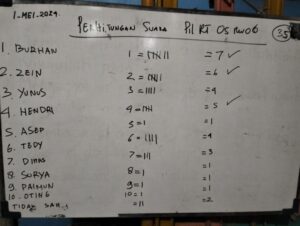 1-MEI-2024.
PERHITUNGAN SUARA PIL RT 05 RW06 35
1. BURHAN 1 = =7 ✓
2. ZEIN 2 = =6 ✓
3. YUNUS 3 = IIII =4
4. HENDRI 4 = =5 ✓
5. ASEP 5 = I =1
6. TEDY 6 = IIII =4
7. DIMAS 7 = III =3
8. SURYA 8 = I =1
9. PAIMUN 9 = I =1
10. OTING 10 = I =1
TIDAK SAH = II =2